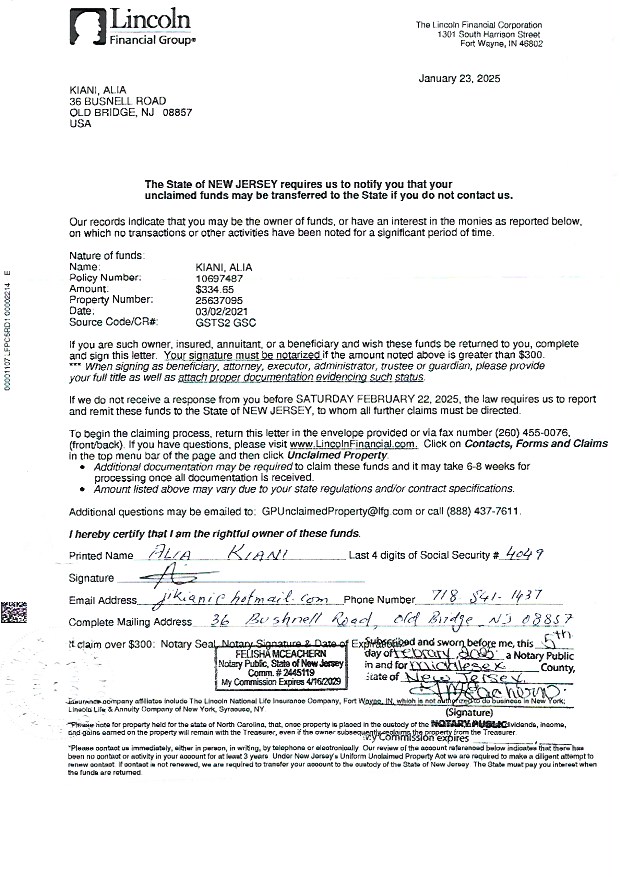 Lincoln
Financial Group®
The Lincoln Financial Corporation
1301 South Harrison Street
Fort Wayne, IN 46802
January 23, 2025
KIANI, ALIA
36 BUSNELL ROAD
OLD BRIDGE, NJ 08857
USA
The State of NEW JERSEY requires us to notify you that your
unclaimed funds may be transferred to the State if you do not contact us.
Our records indicate that you may be the owner of funds, or have an interest in the monies as reported below,
on which no transactions or other activities have been noted for a significant period of time.
Nature of funds:
Name: KIANI, ALIA
Policy Number: 10697487
Amount: $334.65
Property Number: 25637095
Date: 03/02/2021
Source Code/CR#: GSTS2 GSC
If you are such owner, insured, annuitant, or a beneficiary and wish these funds be returned to you, complete
and sign this letter. Your signature must be notarized if the amount noted above is greater than $300.
*** When signing as beneficiary, attorney, executor, administrator, trustee or guardian, please provide
your full title as well as attach proper documentation evidencing such status.
If we do not receive a response from you before SATURDAY FEBRUARY 22, 2025, the law requires us to report
and remit these funds to the State of NEW JERSEY, to whom all further claims must be directed.
To begin the claiming process, return this letter in the envelope provided or via fax number (260) 455-0076,
(front/back). If you have questions, please visit www.LincolnFinancial.com. Click on Contacts, Forms and Claims
in the top menu bar of the page and then click Unclaimed Property.
• Additional documentation may be required to claim these funds and it may take 6-8 weeks for
processing once all documentation is received.
• Amount listed above may vary due to your state regulations and/or contract specifications.
Additional questions may be emailed to: GPUnclaimedProperty@lfg.com or call (888) 437-7611.
I hereby certify that I am the rightful owner of these funds.
Printed Name ALIA KIANI Last 4 digits of Social Security # 4049
Signature
Email Address jikiani@hotmail.com Phone Number 718 541-1437
Complete Mailing Address 36 Bushnell Road, Old Bridge NJ 08857
If claim over $300: Notary Seal, Notary Signature & Date of
Subscribed and sworn before me, this 5th
day of February 2025 a Notary Public
in and for Middlesex County,
State of New Jersey.
FELISHA MCEACHERN
Notary Public, State of New Jersey
Comm. # 2445119
My Commission Expires 4/16/2029
(Signature)
NOTARY PUBLIC
My Commission expires
Insurance company affiliates include The Lincoln National Life Insurance Company, Fort Wayne, IN, which is not authorized to do business in New York;
Lincoln Life & Annuity Company of New York, Syracuse, NY
*Please note for property held for the state of North Carolina, that, once property is placed in the custody of the dividends, income,
and gains earned on the property will remain with the Treasurer, even if the owner subsequently reclaims the property from the Treasurer
*Please contact us immediately, either in person, in writing, by telephone or electronically Our review of the account referenced below indicates that there has
been no contact or activity in your account for at least 3 years Under New Jersey's Uniform Unclaimed Property Act we are required to make a diligent attempt to
renew contact If contact is not renewed, we are required to transfer your account to the custody of the State of New Jersey The State must pay you interest when
the funds are returned.
00001107 LFPCSRD1 00002214 E